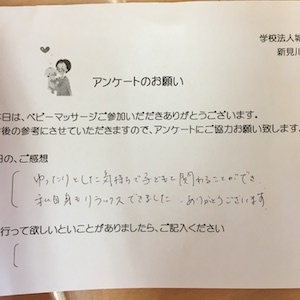 学校法人
新見
アンケートのお願い
日は、ベビーマッサージご参加いただきありがとうございます。
後の参考にさせていただきますので、アンケートにご協力お願い致します
日の、ご感想
ゆったりとした気持ちで子どもと関わることができ、
私自身もリラックスできました。ありがとうございます
行って欲しいといことがありましたら、ご記入ください